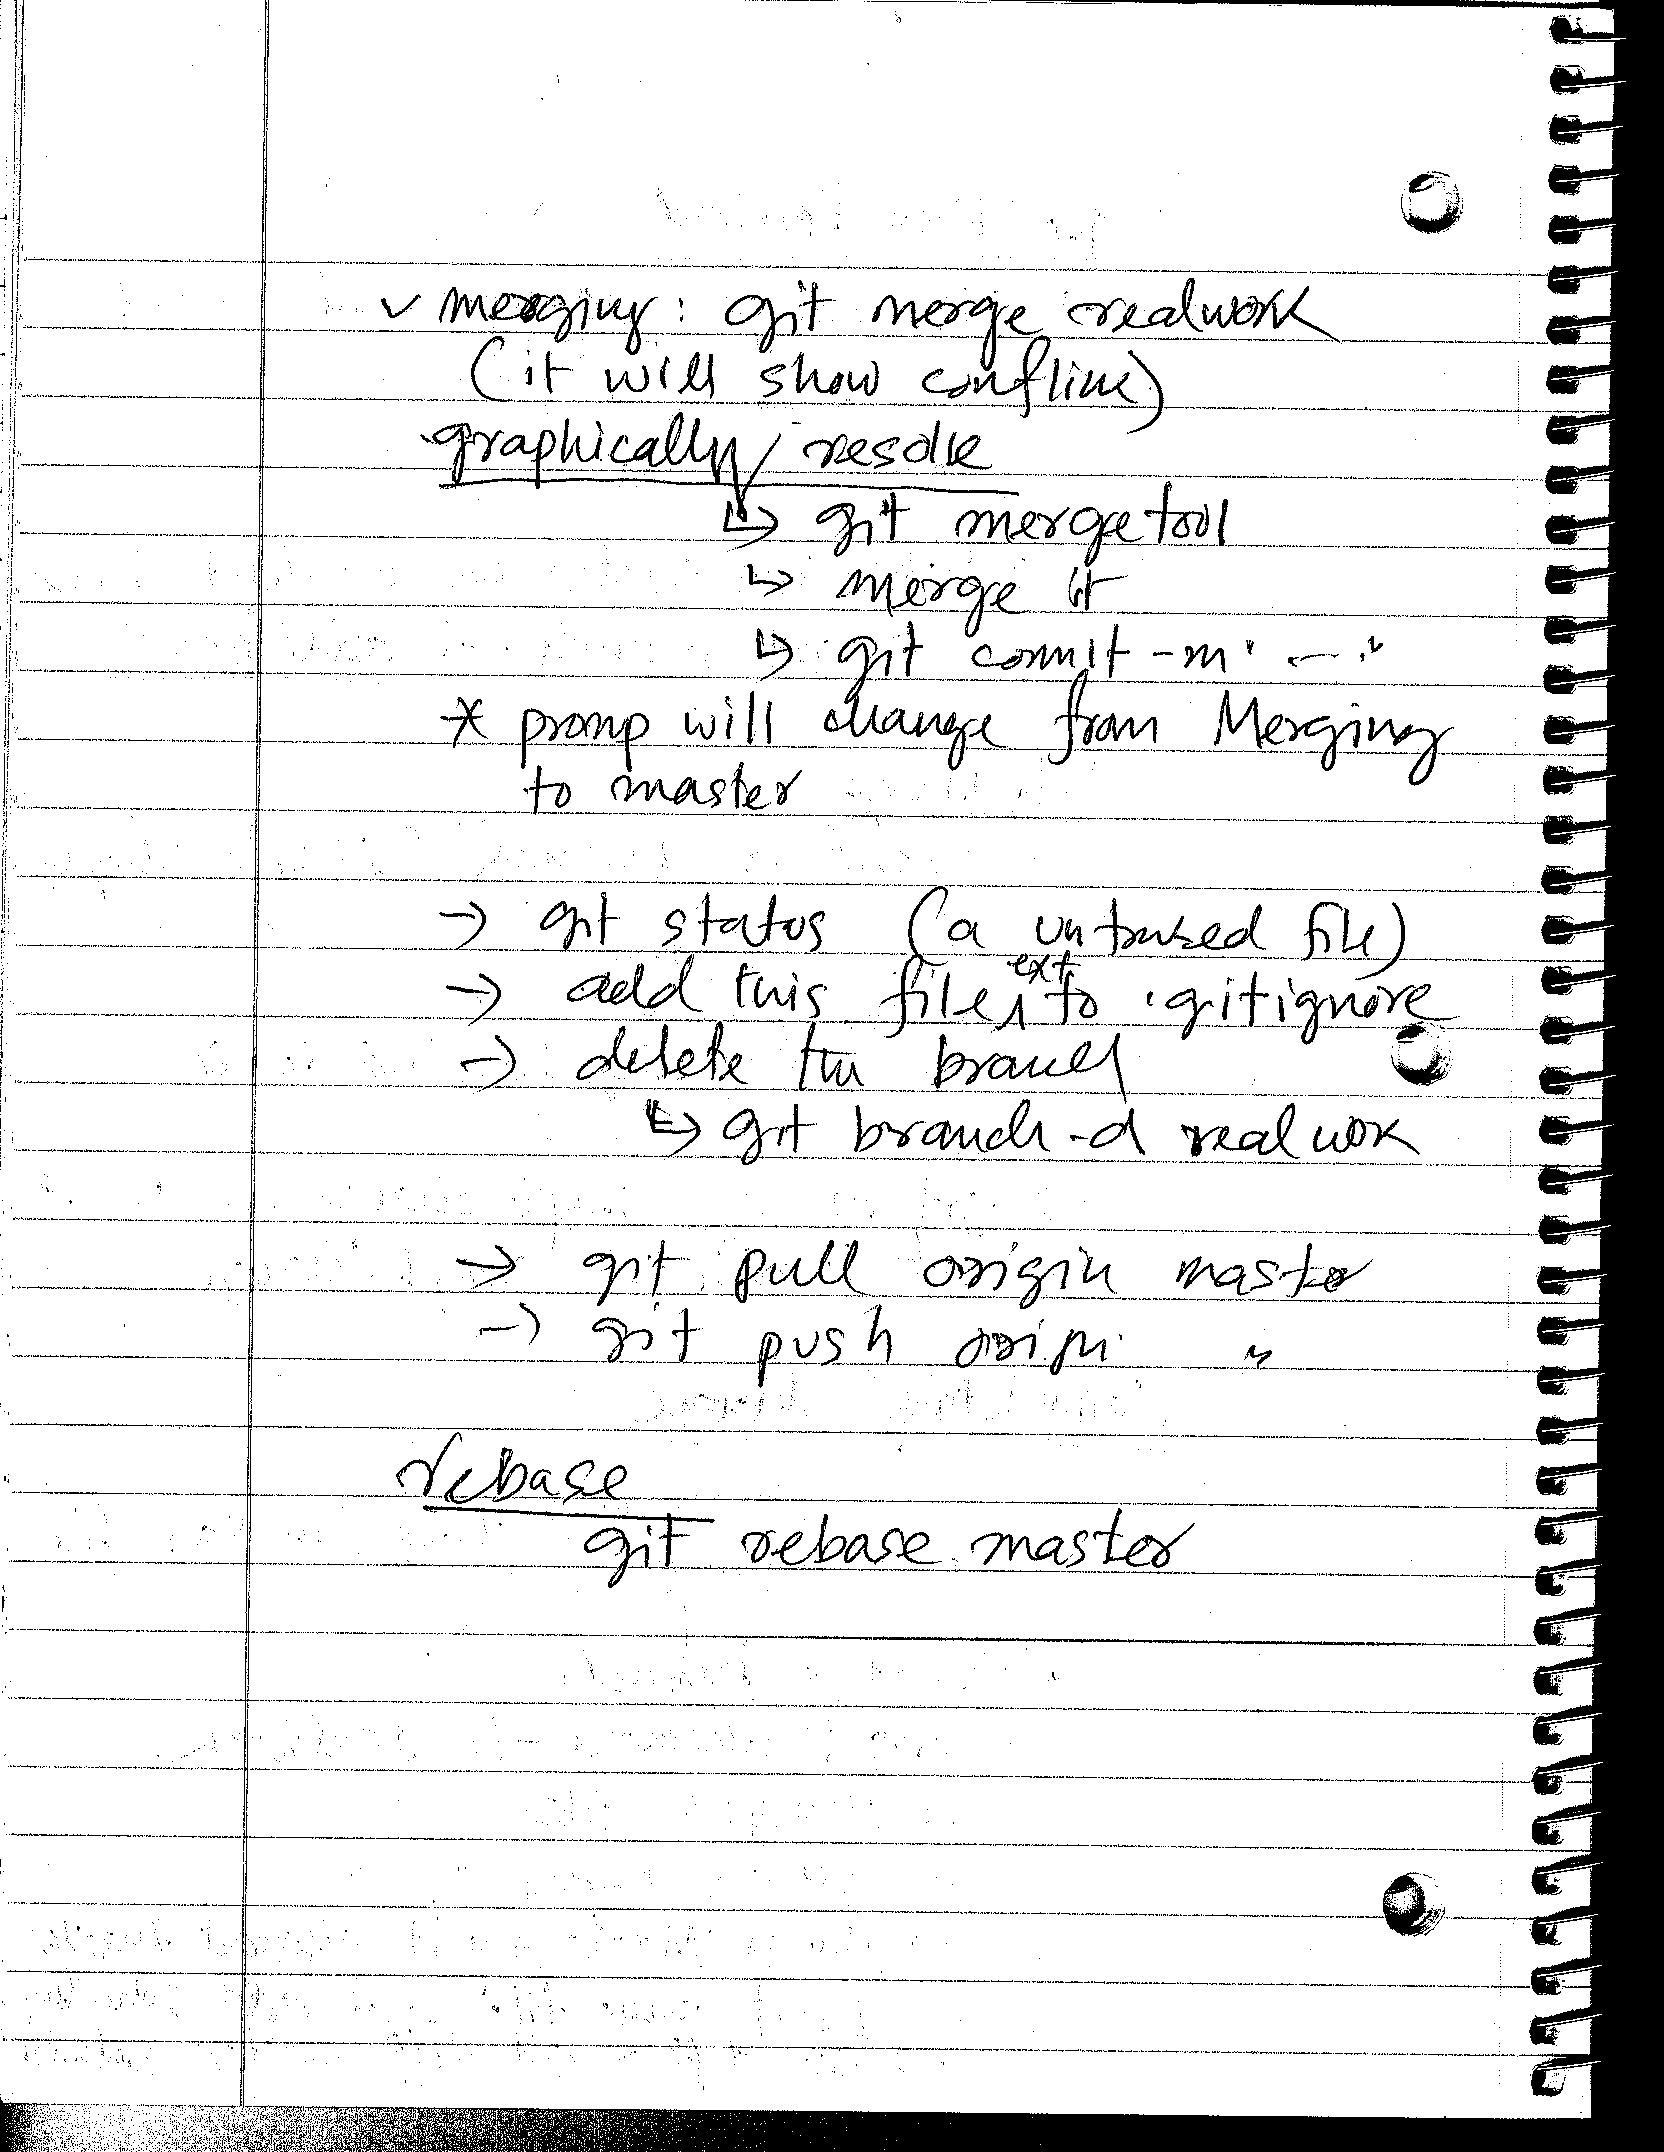 ✓ merging: git merge realwork
(it will show conflict)
graphically resolve
↳ git mergetool
↳ merge it
↳ git commit -m " — "
* promp will change from Merging
to master
→ git status (a untracked file)
→ add this file ext to .gitignore
→ delete the branch
↳ git branch -d realwok
→ git pull origin master
→ git push origin "
rebase
git rebase master